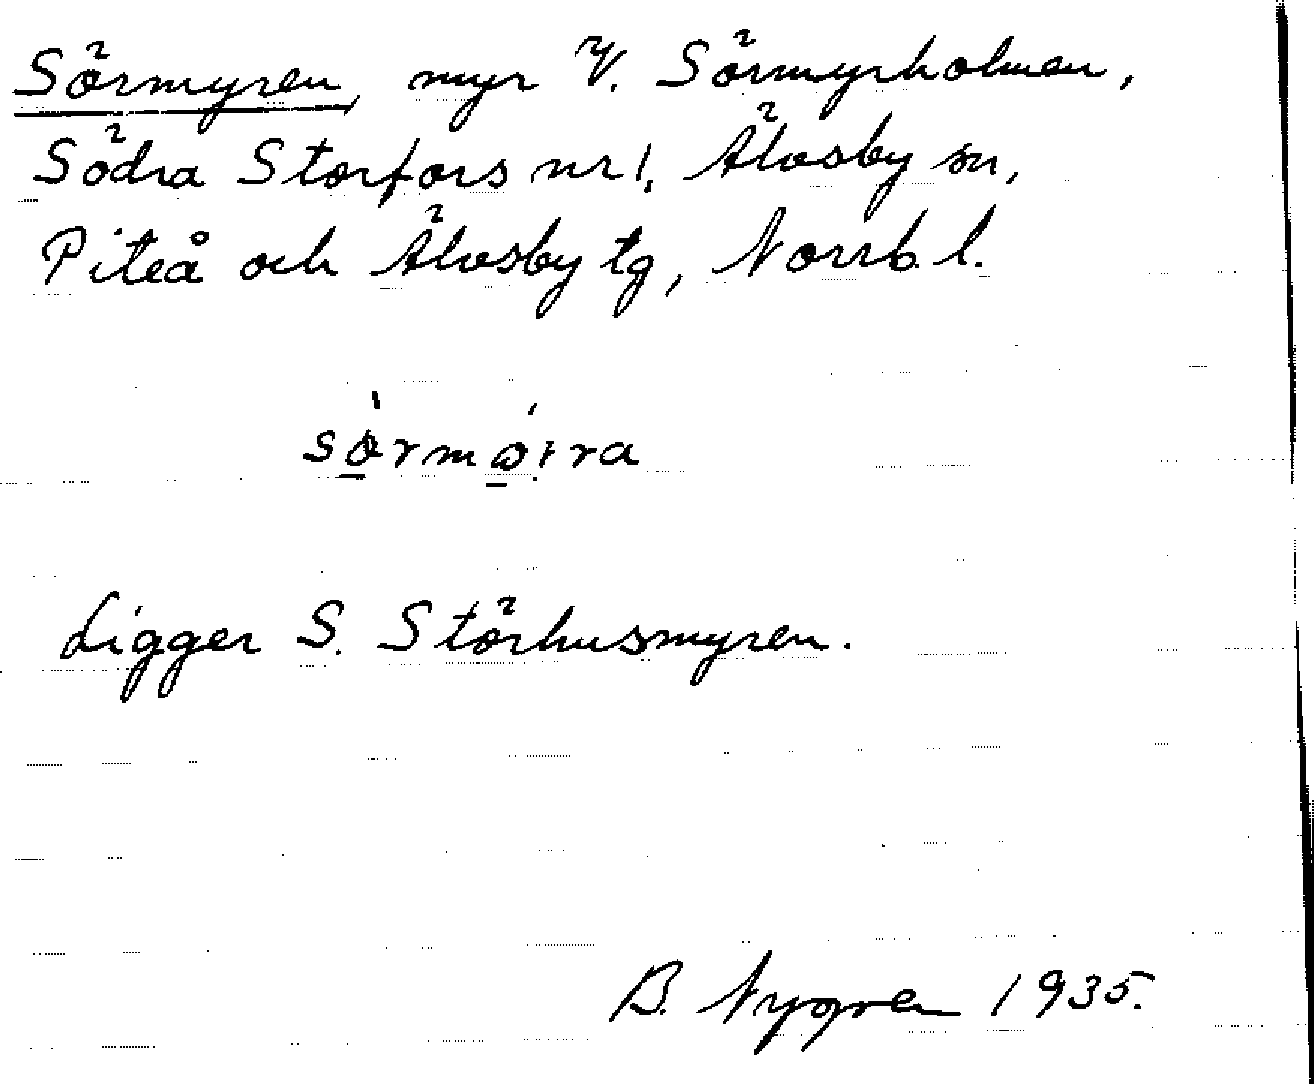 Sörmyren, myr V. Sörmyrholmen,
Södra Storfors nr 1, Älvsby sn,
Piteå och Älvsby tg, Norrb. l.
Ligger S. Störhusmyren.
B. Nygren 1935.